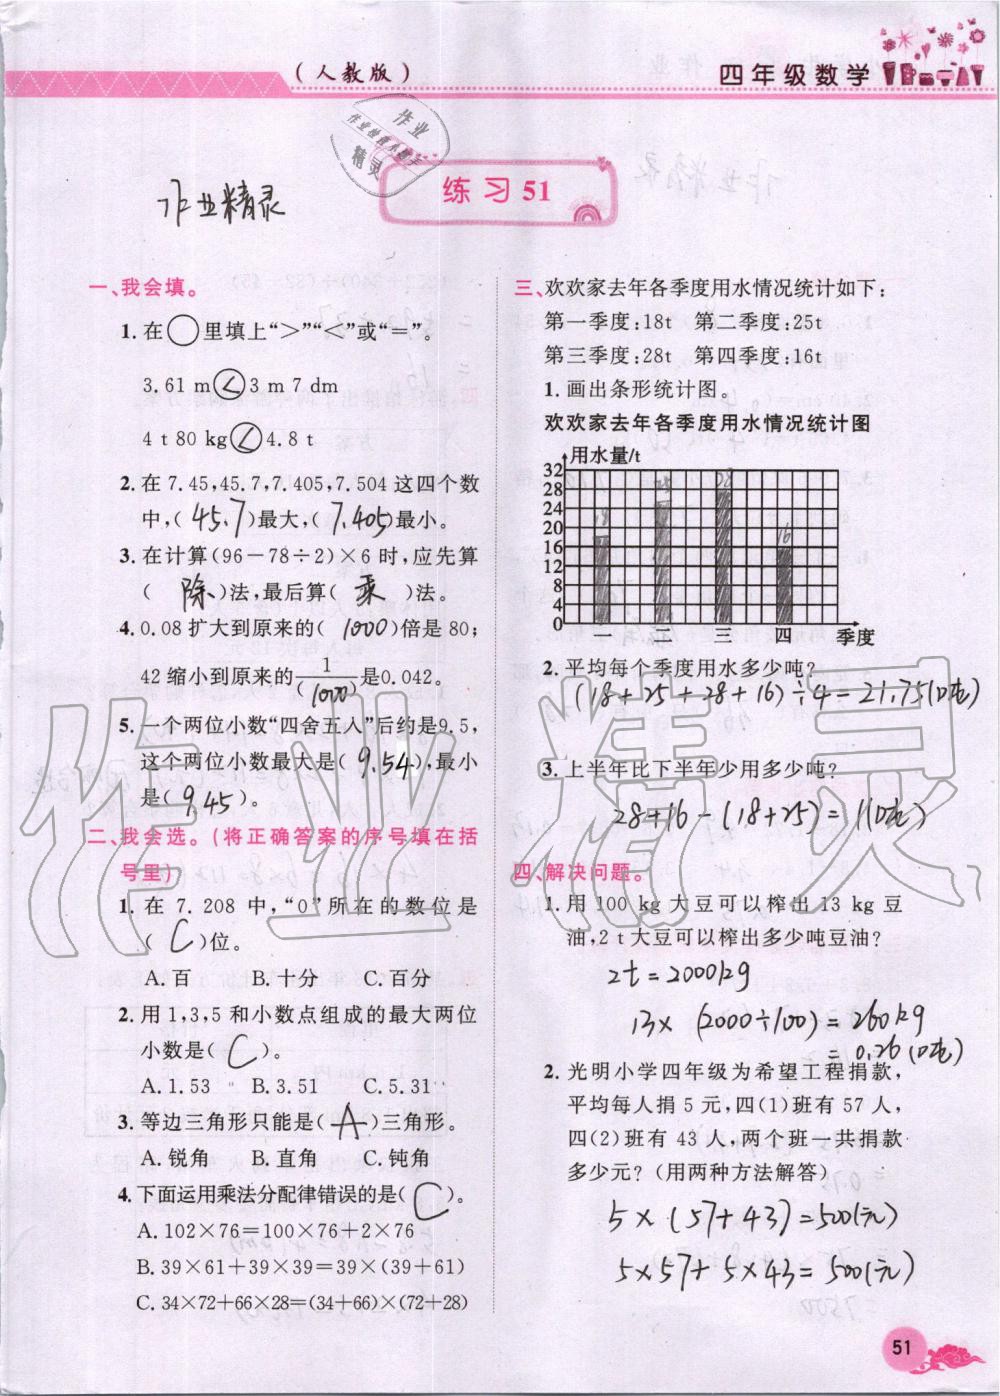 (人教版)
四年级数学
作业
精灵
作业精灵
练习51
一、我会填。
1. 在○里填上“>”“<”或“=”。
3.61 m<3 m 7 dm
4 t 80 kg<4.8 t
2. 在 7.45,45.7,7.405,7.504 这四个数
中,( 45.7 )最大,( 7.405 )最小。
3. 在计算(96-78÷2)×6 时,应先算
( 除 )法,最后算( 乘 )法。
4. 0.08 扩大到原来的( 1000 )倍是 80;
42 缩小到原来的 1/(1000) 是0.042。
5. 一个两位小数“四舍五入”后约是9.5,
这个两位小数最大是( 9.54 ),最小
是( 9.45 )。
二、我会选。(将正确答案的序号填在括
号里)
1. 在 7.208 中,“0”所在的数位是
( C )位。
A. 百 B. 十分 C. 百分
2. 用 1,3,5 和小数点组成的最大两位
小数是( C )。
A. 1.53 B. 3.51 C. 5.31
3. 等边三角形只能是( A )三角形。
A. 锐角 B. 直角 C. 钝角
4. 下面运用乘法分配律错误的是( C )。
A. 102×76=100×76+2×76
B. 39×61+39×39=39×(39+61)
C. 34×72+66×28=(34+66)×(72+28)
三、欢欢家去年各季度用水情况统计如下:
第一季度:18t 第二季度:25t
第三季度:28t 第四季度:16t
1. 画出条形统计图。
欢欢家去年各季度用水情况统计图
用水量/t
32
28
24
20
16
12
8
4
0
18
25
28
16
一 二 三 四 季度
2. 平均每个季度用水多少吨?
(18+25+28+16)÷4=21.75(吨)
3. 上半年比下半年少用多少吨?
28+16-(18+25)=1(吨)
四、解决问题。
1. 用 100 kg 大豆可以榨出 13 kg 豆
油,2 t 大豆可以榨出多少吨豆油?
2t=2000kg
13×(2000÷100)=260kg
=0.26(吨)
2. 光明小学四年级为希望工程捐款,
平均每人捐 5 元,四(1)班有 57 人,
四(2)班有 43 人,两个班一共捐款
多少元?(用两种方法解答)
5×(57+43)=500(元)
5×57+5×43=500(元)
51
作业精灵